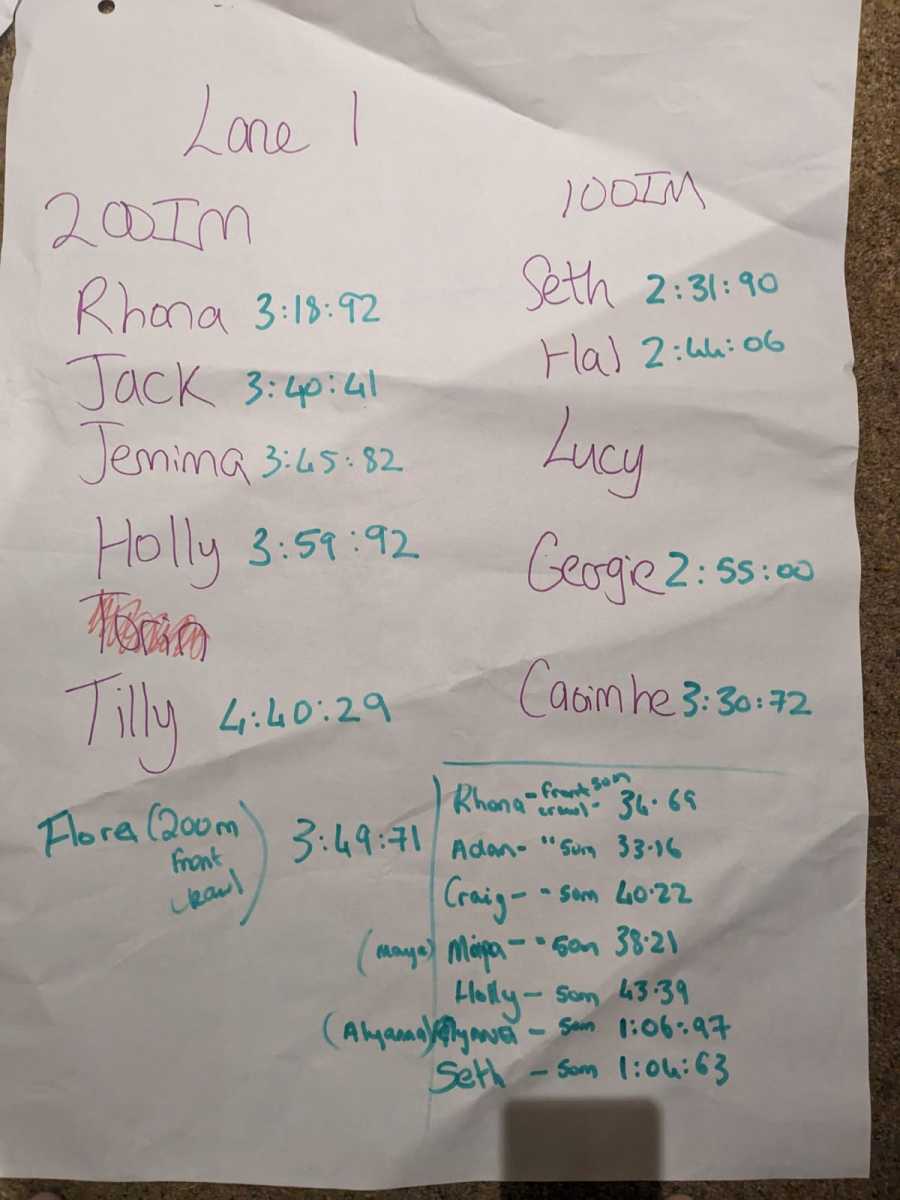 Lane 1
200IM
Rhona 3:18:92
Jack 3:40:41
Jemima 3:45:82
Holly 3:59:92
Tilly 4:40:29
100IM
Seth 2:31:90
Hal 2:44:06
Lucy
Georgie 2:55:00
Caoimhe 3:30:72
Flora (200m
front
crawl) 3:49:71
Rhona - front 50m
crawl - 34.69
Adan - " 50m 33.16
Craig - " 50m 40.22
(Maya) - " 50m 38.21
Holly - 50m 43.39
- 50m 1:06:97
Seth - 50m 1:04:63